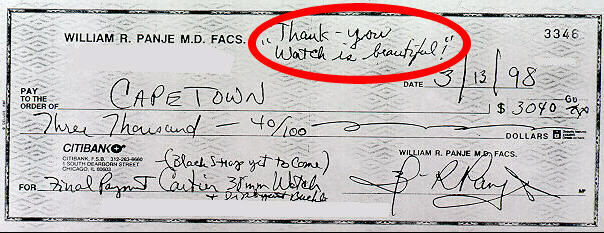 "Thank-you
Watch is beautiful!"
WILLIAM R. PANJE M.D. FACS.
3346
DATE 3/13/98
PAY
TO THE
ORDER OF CAPETOWN
$ 3040
Three Thousand - 40/100
DOLLARS
CITIBANK
CITIBANK, F.S.B. 312-263-6660
1 SOUTH DEARBORN STREET
CHICAGO, IL 60603
(Black Strap yet to Come)
WILLIAM R. PANJE M.D. FACS.
FOR Final Paymnt Cartier 38mm Watch
+
MP